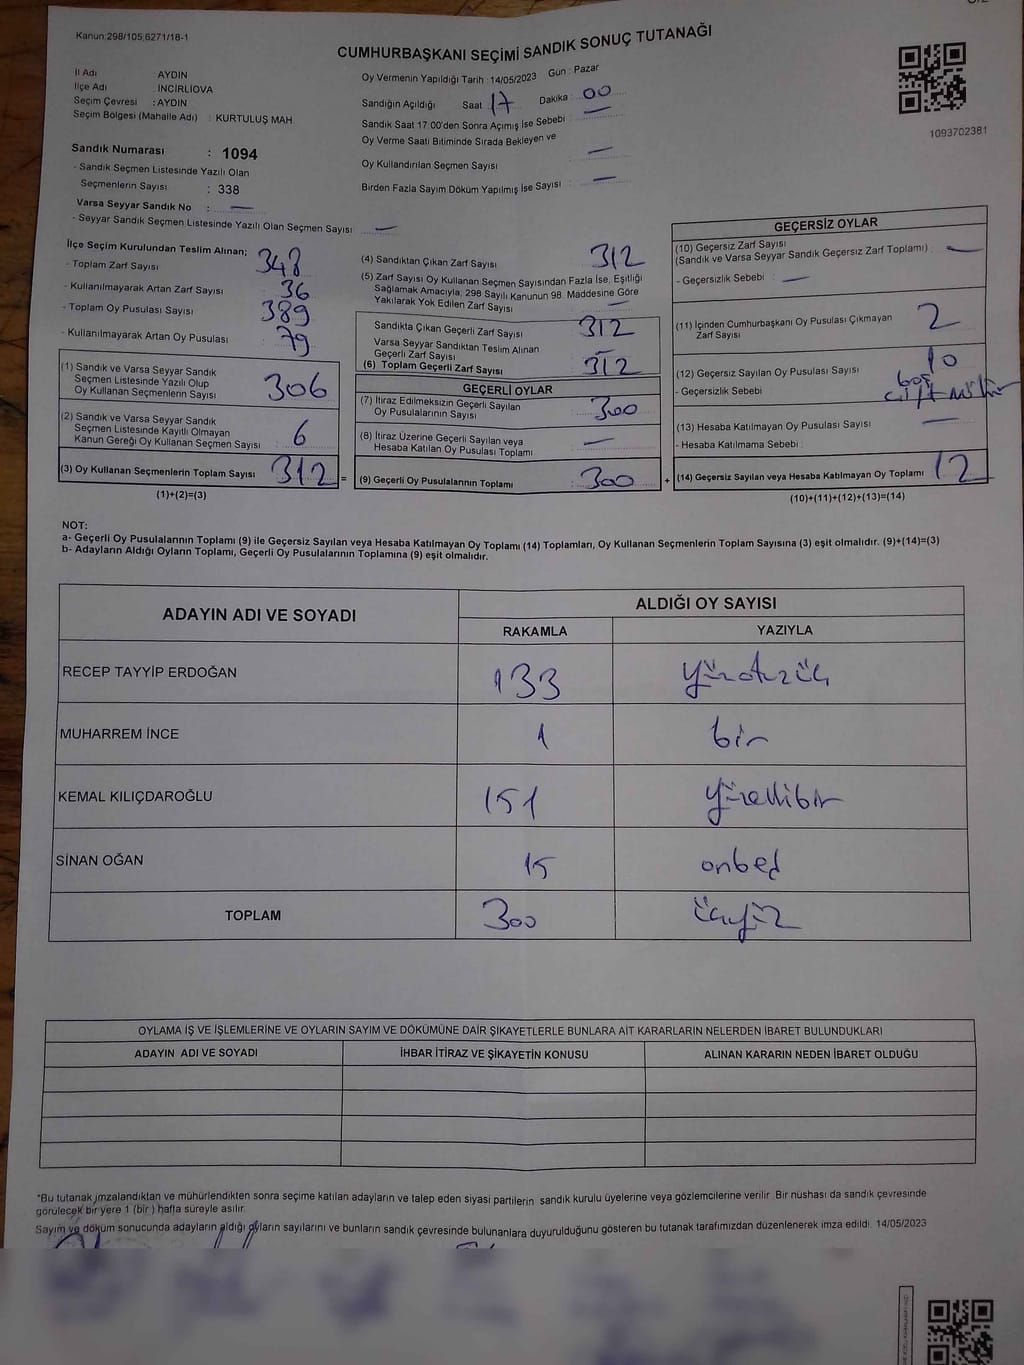 Kanun:298/105;6271/18-1
CUMHURBAŞKANI SEÇİMİ SANDIK SONUÇ TUTANAĞI
İl Adı AYDIN
İlçe Adı İNCİRLİOVA
Seçim Çevresi : AYDIN
Seçim Bölgesi (Mahalle Adı) : KURTULUŞ MAH.
Oy Vermenin Yapıldığı Tarih : 14/05/2023 Gün : Pazar
Sandığın Açıldığı Saat 17 Dakika : 00
Sandık Saat 17:00'den Sonra Açımış İse Sebebi : —
Oy Verme Saati Bitiminde Sırada Bekleyen ve
Oy Kullandırılan Seçmen Sayısı : —
Birden Fazla Sayım Döküm Yapılmış İse Sayısı : —
1093702381
Sandık Numarası : 1094
- Sandık Seçmen Listesinde Yazılı Olan
Seçmenlerin Sayısı : 338
Varsa Seyyar Sandık No : —
- Seyyar Sandık Seçmen Listesinde Yazılı Olan Seçmen Sayısı : —
İlçe Seçim Kurulundan Teslim Alınan;
- Toplam Zarf Sayısı 348
- Kullanılmayarak Artan Zarf Sayısı 36
- Toplam Oy Pusulası Sayısı 389
- Kullanılmayarak Artan Oy Pusulası 79
(1) Sandık ve Varsa Seyyar Sandık
Seçmen Listesinde Yazılı Olup
Oy Kullanan Seçmenlerin Sayısı 306
(2) Sandık ve Varsa Seyyar Sandık
Seçmen Listesinde Kayıtlı Olmayan
Kanun Gereği Oy Kullanan Seçmen Sayısı 6
(3) Oy Kullanan Seçmenlerin Toplam Sayısı 312 =
(1)+(2)=(3)
(4) Sandıktan Çıkan Zarf Sayısı 312
(5) Zarf Sayısı Oy Kullanan Seçmen Sayısından Fazla İse, Eşitliği
Sağlamak Amacıyla; 298 Sayılı Kanunun 98. Maddesine Göre
Yakılarak Yok Edilen Zarf Sayısı —
Sandıkta Çıkan Geçerli Zarf Sayısı 312
Varsa Seyyar Sandıktan Teslim Alınan
Geçerli Zarf Sayısı —
(6) Toplam Geçerli Zarf Sayısı 312
GEÇERLİ OYLAR
(7) İtiraz Edilmeksizin Geçerli Sayılan
Oy Pusulalarının Sayısı 300
(8) İtiraz Üzerine Geçerli Sayılan veya
Hesaba Katılan Oy Pusulası Toplamı —
(9) Geçerli Oy Pusulalarının Toplamı 300 +
GEÇERSİZ OYLAR
(10) Geçersiz Zarf Sayısı
(Sandık ve Varsa Seyyar Sandık Geçersiz Zarf Toplamı) : —
- Geçersizlik Sebebi : —
(11) İçinden Cumhurbaşkanı Oy Pusulası Çıkmayan
Zarf Sayısı 2
(12) Geçersiz Sayılan Oy Pusulası Sayısı 10
- Geçersizlik Sebebi boş
çift mühür
(13) Hesaba Katılmayan Oy Pusulası Sayısı —
- Hesaba Katılmama Sebebi
(14) Geçersiz Sayılan veya Hesaba Katılmayan Oy Toplamı 12
(10)+(11)+(12)+(13)=(14)
NOT:
a- Geçerli Oy Pusulalarının Toplamı (9) ile Geçersiz Sayılan veya Hesaba Katılmayan Oy Toplamı (14) Toplamları, Oy Kullanan Seçmenlerin Toplam Sayısına (3) eşit olmalıdır. (9)+(14)=(3)
b- Adayların Aldığı Oyların Toplamı, Geçerli Oy Pusulalarının Toplamına (9) eşit olmalıdır.
ADAYIN ADI VE SOYADI ALDIĞI OY SAYISI
RAKAMLA YAZIYLA
RECEP TAYYİP ERDOĞAN 133 yüzotuzüç
MUHARREM İNCE 1 bir
KEMAL KILIÇDAROĞLU 151 yüzellibir
SİNAN OĞAN 15 onbeş
TOPLAM 300 üçyüz
OYLAMA İŞ VE İŞLEMLERİNE VE OYLARIN SAYIM VE DÖKÜMÜNE DAİR ŞİKAYETLERLE BUNLARA AİT KARARLARIN NELERDEN İBARET BULUNDUKLARI
ADAYIN ADI VE SOYADI İHBAR İTİRAZ VE ŞİKAYETİN KONUSU ALINAN KARARIN NEDEN İBARET OLDUĞU
*Bu tutanak imzalandıktan ve mühürlendikten sonra seçime katılan adayların ve talep eden siyasi partilerin sandık kurulu üyelerine veya gözlemcilerine verilir. Bir nüshası da sandık çevresinde
görülecek bir yere 1 (bir) hafta süreyle asılır.
Sayım ve döküm sonucunda adayların aldığı oyların sayılarını ve bunların sandık çevresinde bulunanlara duyurulduğunu gösteren bu tutanak tarafımızdan düzenlenerek imza edildi. 14/05/2023